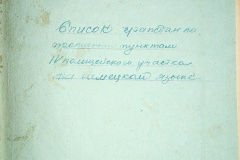 Список граждан по
пунктам
IV полицейского участка
на немецком языке.